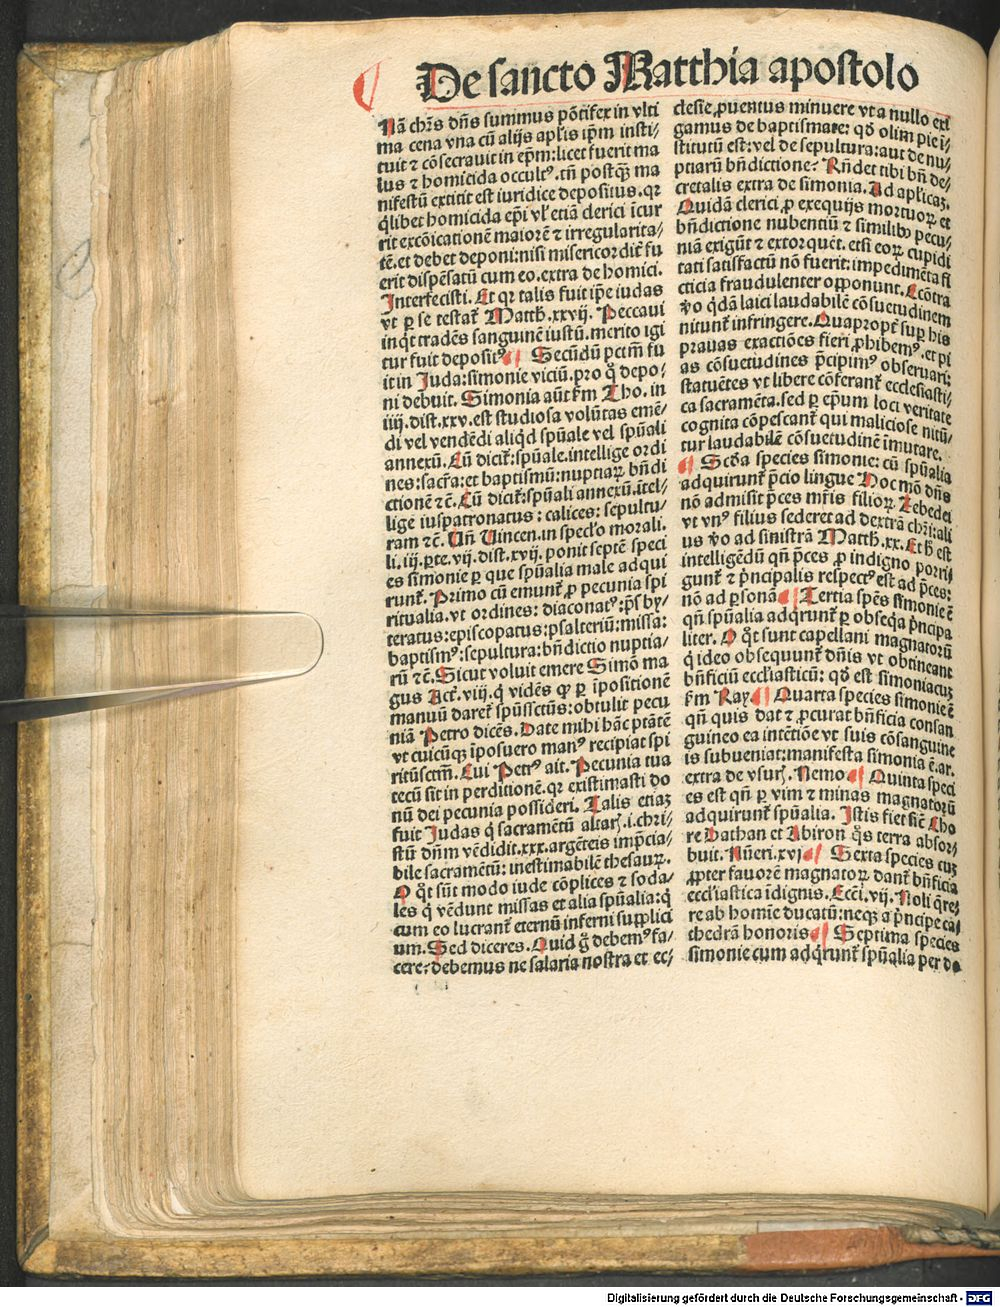 De sancto Matthia apostolo
Nā chꝛs dn̄s summus pōtifex in vlti
ma cena vna cū alijs apl̄is ip̄m insti⸗
tuit ⁊ cōsecrauit in ep̄m: licet fuerit ma
lus ⁊ homicida occultꝰ. tn̄ postq̄ꝫ ma
nifestū extitit est iuridice depositus. qꝛ
q̄libet homicida ep̄i vl̓ etiā clerici īcur
rit excōicationē maiorē ⁊ irregularita⸗
tē. et debet deponi: nisi misericordit̄ fu
erit dispēsatū cum eo. extra de homici.
Interfecisti. Et qꝛ talis fuit ip̄e iudas
vt ꝑ se testat̄ Matth̄. xxvij. Peccaui
inq̇t tradēs sanguinē iustū. merito igi
tur fuit depositꝰ ¶ Secūdū pctm̄ fu
it in Juda: simonie viciū. pro q̊ depo⸗
ni debuit. Simonia aūt ẜm Tho. in
iiij. dist. xxv. est studiosa volūtas emē⸗
di vel vendēdi aliqd̓ spūale vel spūali
annexū. Cū dicit̄: spūale. intellige ordi
nes: sacr̄a: et baptismū: nuptiaꝝ bn̄di
ctionē ⁊c̄. Cū dicit̄: spūali annexū. ītel⸗
lige iuspatronatus: calices: sepultu⸗
ram ⁊c̄. Vn̄ Vincen. in specl̓o morali.
li. iij. ꝑte. vij. dist. xvij. ponit septē speci
es simonie ꝑ que spūalia male adqui
runt̄. Primo cū emunt̄ ꝑ pecunia spi
ritualia. vt ordines: diaconatꝰ: p̄sby⸗
teratus: episcopatus: psalteriū: missa:
baptismꝰ: sepultura: bn̄dictio nuptia⸗
rū ⁊c̄. Sicut voluit emere Simō ma
gus Act̄. viij. q̇ vidēs qꝫ ꝑ īpositionē
manuū daret̄ spūssctūs: obtulit pecu
niā Petro dicēs. Date mihi hāc ptātē
vt cuicūqꝫ īposuero manꝰ recipiat spi
ritūsctm̄. Cui Petrꝰ ait. Pecunia tua
tecū sit in perditionē. qꝛ existimasti do
nū dei pecunia possideri. Talis etiaꝫ
fuit Judas q̇ sacramētū altar̄. i. chri⸗
stū dn̄m vēdidit. xxx. argēteis imp̄cia⸗
bile sacramētū: inestimabilē thesauꝝ.
O q̊t sūt modo iude cōplices ⁊ soda⸗
les q̇ vēdunt missas et alia spūalia: q̇
cum eo lucrant̄ eternū inferni supplici
um. Sed diceres. Quid g̊ debemꝰ fa⸗
cere? debemus ne salaria nostra et ec⸗
clesie ꝓuentus minuere vt a nullo exi
gamus de baptismate: qd̓ olim pie ī⸗
stitutū est: vel de sepultura: aut de nu⸗
ptiarū bn̄dictione? Rn̄det tibi bn̄ de⸗
cretalis extra de simonia. Ad apl̓icaꝫ.
Quidā clerici ꝓ exequijs mortuoꝝ et
bn̄dictione nubentiū ⁊ similibꝰ pecu⸗
niā exigūt ⁊ extorquēt. etsi eoꝝ cupidi
tati satisfactū nō fuerit: impedimēta fi
cticia fraudulenter opponunt. Ecōtra
v̊o q̇dā laici laudabilē cōsuetudinem
nitunt̄ infringere. Quapropt̄ suꝑ his
prauas exactiōes fieri ꝓhibemꝰ. et pi
as cōsuetudines p̄cipimꝰ obseruari:
statuētes vt libere cōferant̄ ecclesiasti⸗
ca sacramēta. sed ꝑ ep̄um loci veritate
cognita cōpescant̄ qui maliciose nitū⸗
tur laudabilē cōsuetudinē īmutare.
¶ Scd̓a species simonie: cū spūalia
adquirunt̄ p̄cio lingue Hoc mō dn̄s
nō admisit p̄ces mr̄is filioꝝ Zebedei
vt vnꝰ filius sederet ad dextrā chr̄i: ali
us v̊o ad sinistrā Matth̄. xx. Et h̄ est
intelligēdū qn̄ p̄ces ꝓ indigno porri⸗
gunt̄ ⁊ p̓ncipalis respectꝰ est ad p̄ces:
nō ad ꝑsonā ¶ Tertia spēs simonie ē
qn̄ spūalia adq̇runt̄ ꝑ obseq̇a p̓ncipa
liter. O q̊t sunt capellani magnatorū
q̇ ideo obsequunt̄ dn̄is vt obtineant
bn̄ficiū eccl̓iasticū: qd̓ est simoniacuꝫ
ẜm Ray ¶ Quarta species simonie ē
qn̄ quis dat ⁊ ꝓcurat bn̄ficia consan
guineo ea intētiōe vt suis cōsanguine
is subueniat: manifesta simonia ē. ar.
extra de vsur̄. Nemo ¶ Quinta speci
es est qn̄ ꝑ vim ⁊ minas magnatorū
adquirunt̄ spūalia. Istis fiet sic̄ Cho
re Dathan et Abiron q̊s terra absor⸗
buit. Nūeri. xvj ¶ Sexta species cuꝫ
ꝓpter fauorē magnatoꝝ dant̄ bn̄ficia
eccl̓iastica īdignis. Ecci. vij. Noli q̄re⸗
re ab homīe ducatū: neqꝫ a p̓ncipe ca⸗
thedrā honoris ¶ Septima species
simonie cum adq̇runt̄ spūalia per do
Digitalisierung gefördert durch die Deutsche Forschungsgemeinschaft - DFG